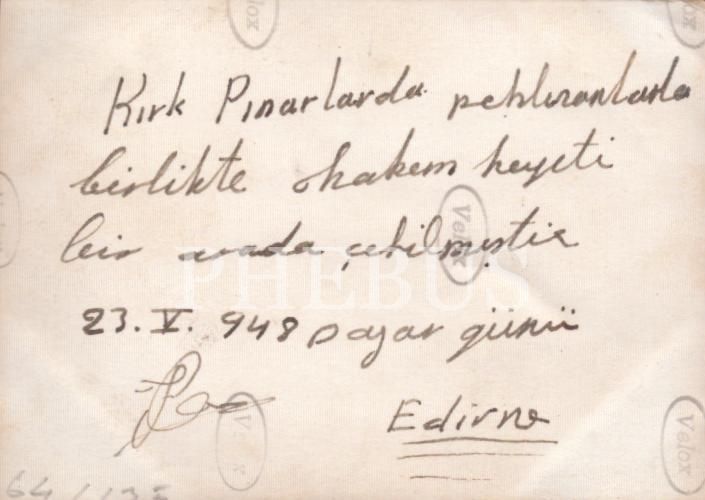 Kırk Pınarlarda pehlivanlarla
birlikte hakem heyeti
bir arada çekilmiştir
23. V. 948 pazar günü
Edirne
Velox
Velox
Velox
Velox
Velox
PHEBUS